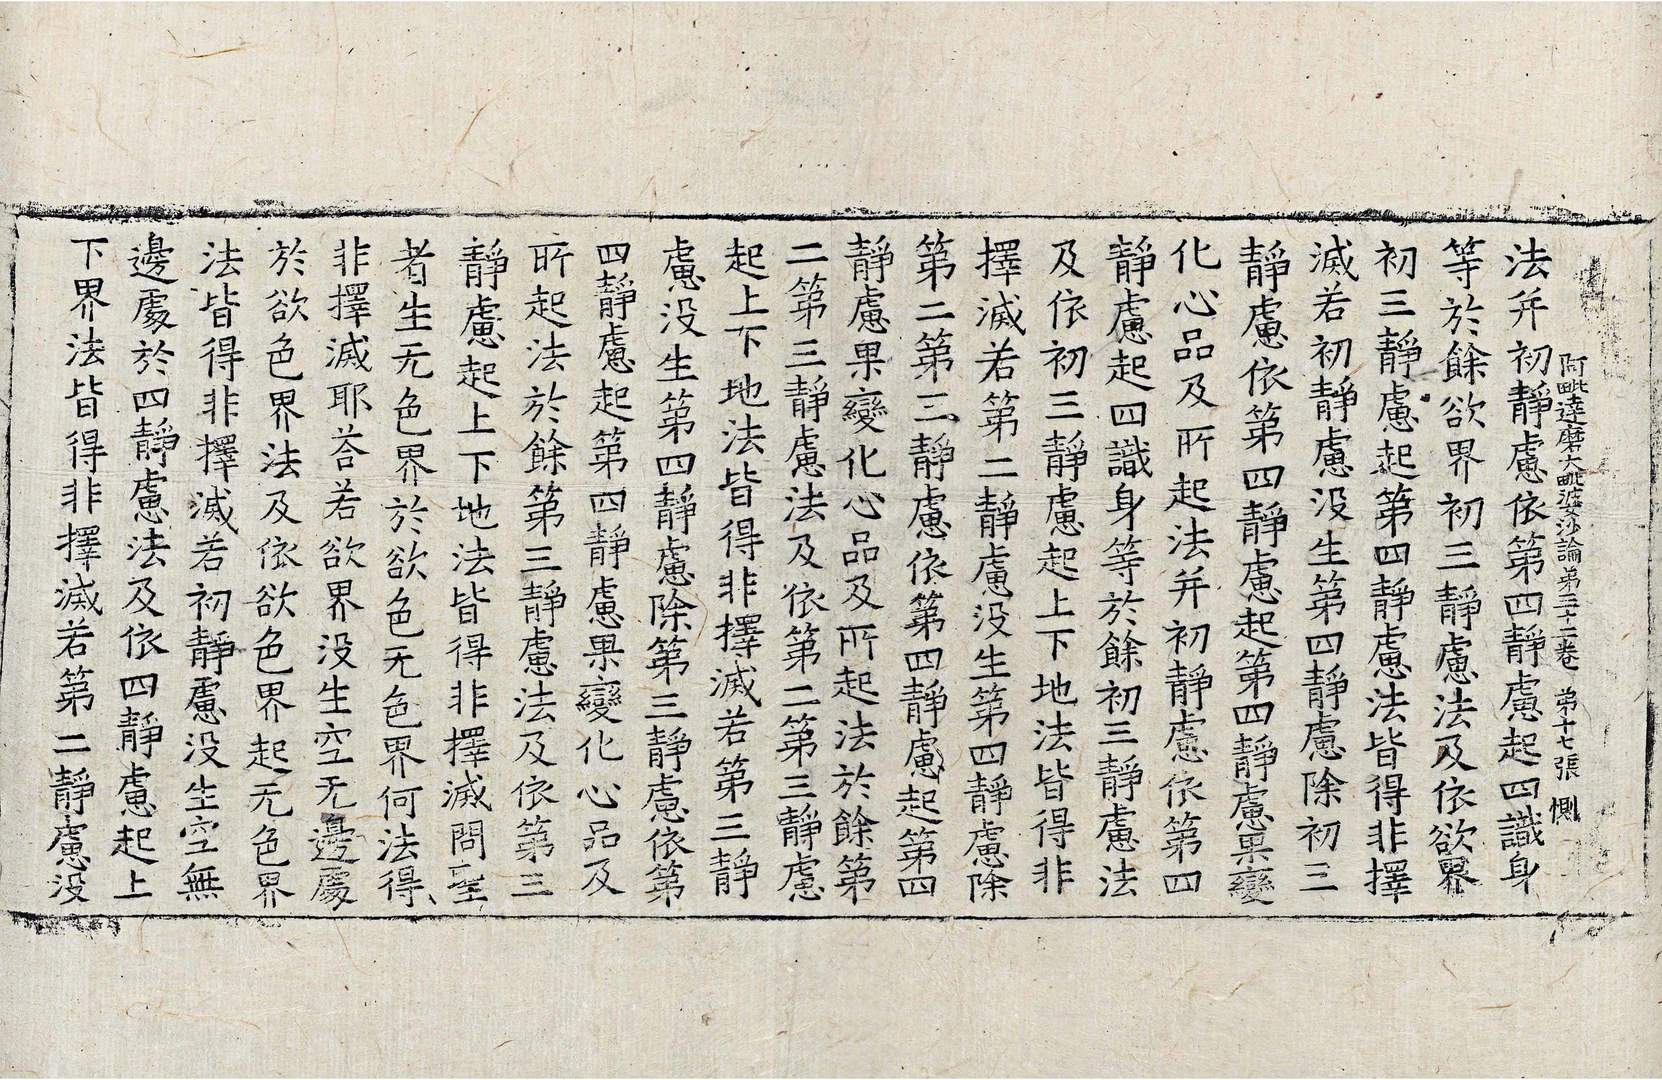 阿毗達磨大毗婆沙論第三十二卷 第十七張 惻
法并初靜慮依第四靜慮起四識身
等於餘欲界初三靜慮法及依欲界
初三靜慮起第四靜慮法皆得非擇
滅若初靜慮没生第四靜慮除初三
靜慮依第四靜慮起第四靜慮果變
化心品及所起法并初靜慮依第四
靜慮起四識身等於餘初三靜慮法
及依初三靜慮起上下地法皆得非
擇滅若第二靜慮没生第四靜慮除
第二第三靜慮依第四靜慮起第四
靜慮果變化心品及所起法於餘第
二第三靜慮法及依第二第三靜慮
起上下地法皆得非擇滅若第三靜
慮没生第四靜慮除第三靜慮依第
四靜慮起第四靜慮果變化心品及
所起法於餘第三靜慮法及依第三
靜慮起上下地法皆得非擇滅問聖
者生无色界於欲色无色界何法得
非擇滅耶荅若欲界没生空无邊處
於欲色界法及依欲色界起无色界
法皆得非擇滅若初靜慮没生空無
邊處於四靜慮法及依四靜慮起上
下界法皆得非擇滅若第二靜慮没